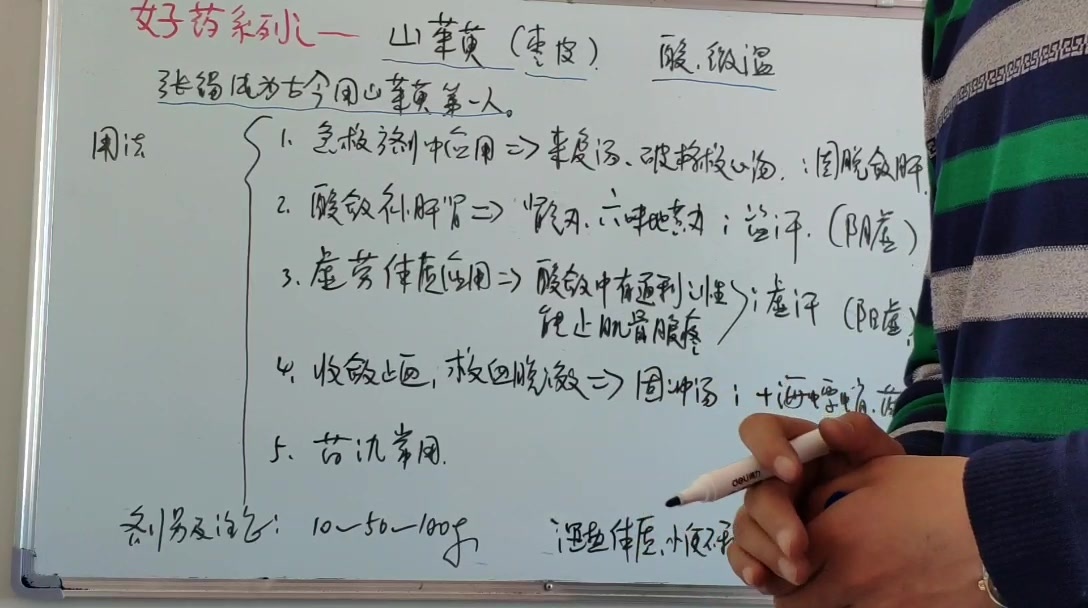 女子药系列之一 山茱萸(枣皮) 酸.微温
张锡纯为古今用山茱萸第一人。
用法
1. 急救方剂中应用⇒来复汤、破格救心汤.:固脱敛肝
2. 酸敛补肝肾⇒肾气丸、六味地黄丸;盗汗.(阴虚)
3. 虚劳体质应用⇒酸敛中有通利之性;虚汗(阳虚)
能止肌骨酸疼
4. 收敛止血,救血脱之效⇒固冲汤;+海螵蛸.
5. 药氿常用.
剂量及注意: 10—50—100g 湿热体质.小便不
deli